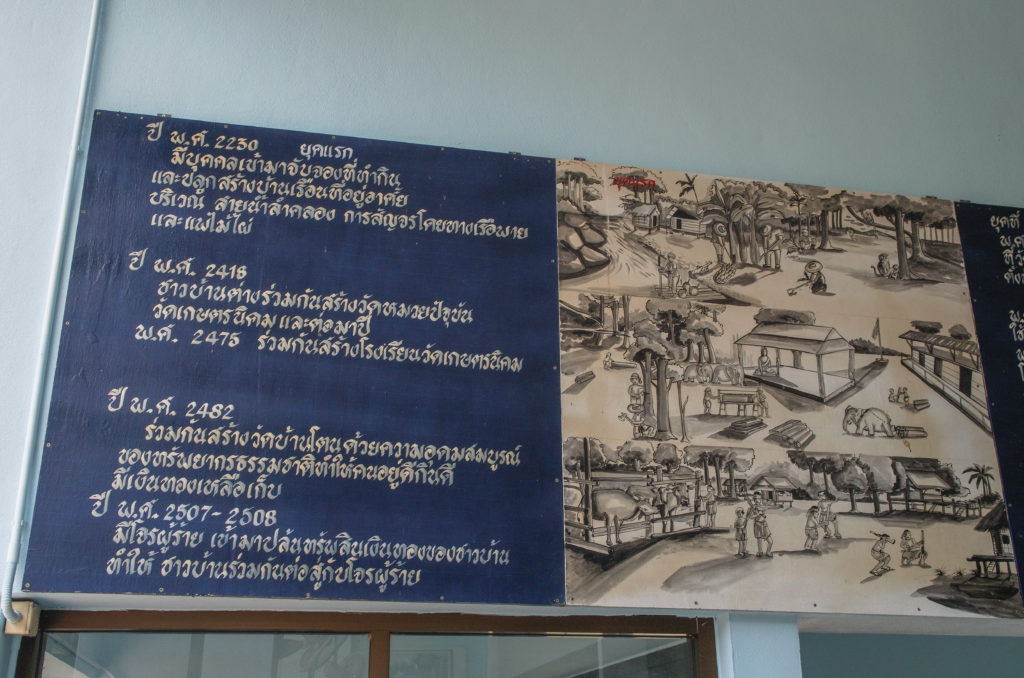 ปี พ.ศ. 2230 ยุคแรก
มีบุคคลเข้ามาจับจองที่ทำกิน
และปลูกสร้างบ้านเรือนที่อยู่อาศัย
บริเวณ สายน้ำลำคลอง การสัญจรโดยทางเรือพาย
และแพไม้ไผ่
ปี พ.ศ. 2418
ชาวบ้านต่างร่วมกันสร้างวัดหมวยปัจุบัน
วัดเกษตรนิคมและต่อมาปี
พ.ศ. 2475 ร่วมกันสร้างโรงเรียนวัดเกษตรนิคม
ปี พ.ศ. 2482
ร่วมกันสร้างวัดบ้านโตนด้วยความอุดมสมบูรณ์
ของทรัพยากรธรรมชาติทำให้คนอยู่ดีกินดี
มีเงินทองเหลือเก็บ
ปี พ.ศ. 2507-2508
มีโจรผู้ร้าย เข้ามาปล้นทรัพสินเงินทองของชาวบ้าน
ทำให้ ชาวบ้านร่วมกันต่อสู้กับโจรผู้ร้าย
ยุคแรก
ยุคที่
พ.ศ.